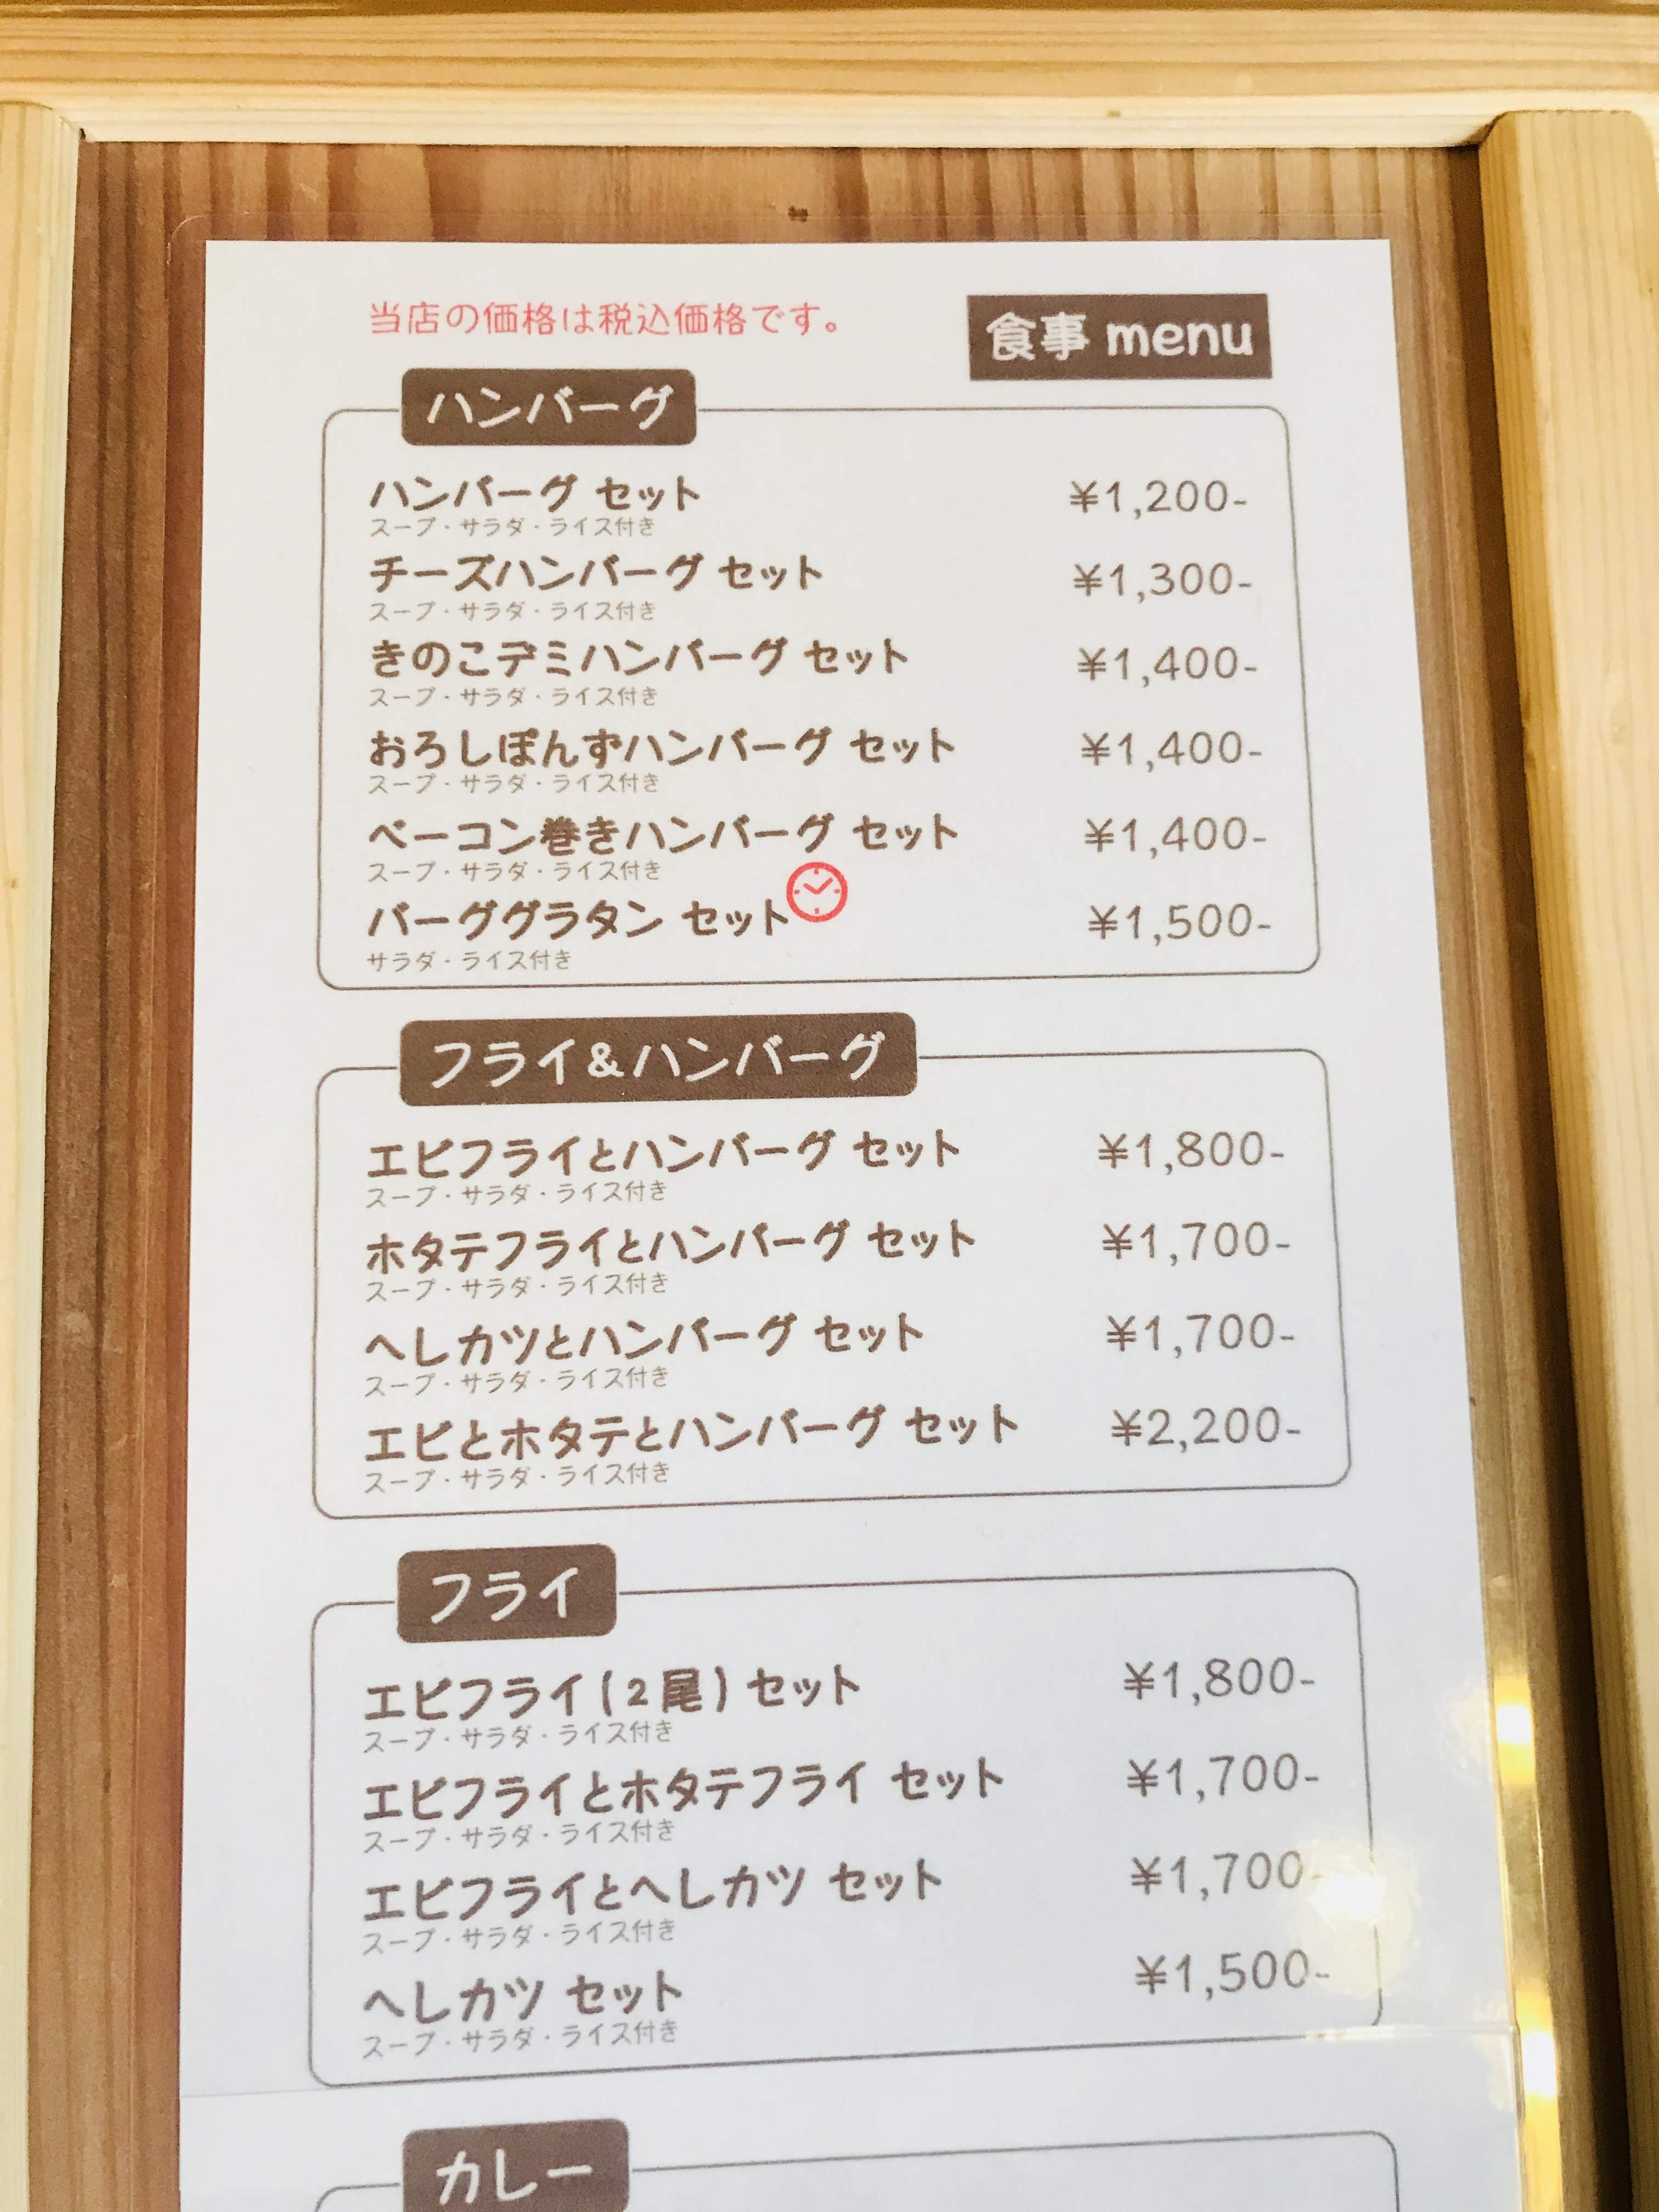 当店の価格は税込価格です。
食事 menu
ハンバーグ
ハンバーグ セット ¥1,200-
スープ・サラダ・ライス付き
チーズハンバーグ セット ¥1,300-
スープ・サラダ・ライス付き
きのこデミハンバーグ セット ¥1,400-
スープ・サラダ・ライス付き
おろしぽんずハンバーグ セット ¥1,400-
スープ・サラダ・ライス付き
ベーコン巻きハンバーグ セット ¥1,400-
スープ・サラダ・ライス付き
バーググラタン セット ¥1,500-
サラダ・ライス付き
フライ&ハンバーグ
エビフライとハンバーグ セット ¥1,800-
スープ・サラダ・ライス付き
ホタテフライとハンバーグ セット ¥1,700-
スープ・サラダ・ライス付き
へしカツとハンバーグ セット ¥1,700-
スープ・サラダ・ライス付き
エビとホタテとハンバーグ セット ¥2,200-
スープ・サラダ・ライス付き
フライ
エビフライ(2尾)セット ¥1,800-
スープ・サラダ・ライス付き
エビフライとホタテフライ セット ¥1,700-
スープ・サラダ・ライス付き
エビフライとへしカツ セット ¥1,700-
スープ・サラダ・ライス付き
へしカツ セット ¥1,500-
スープ・サラダ・ライス付き
カレー